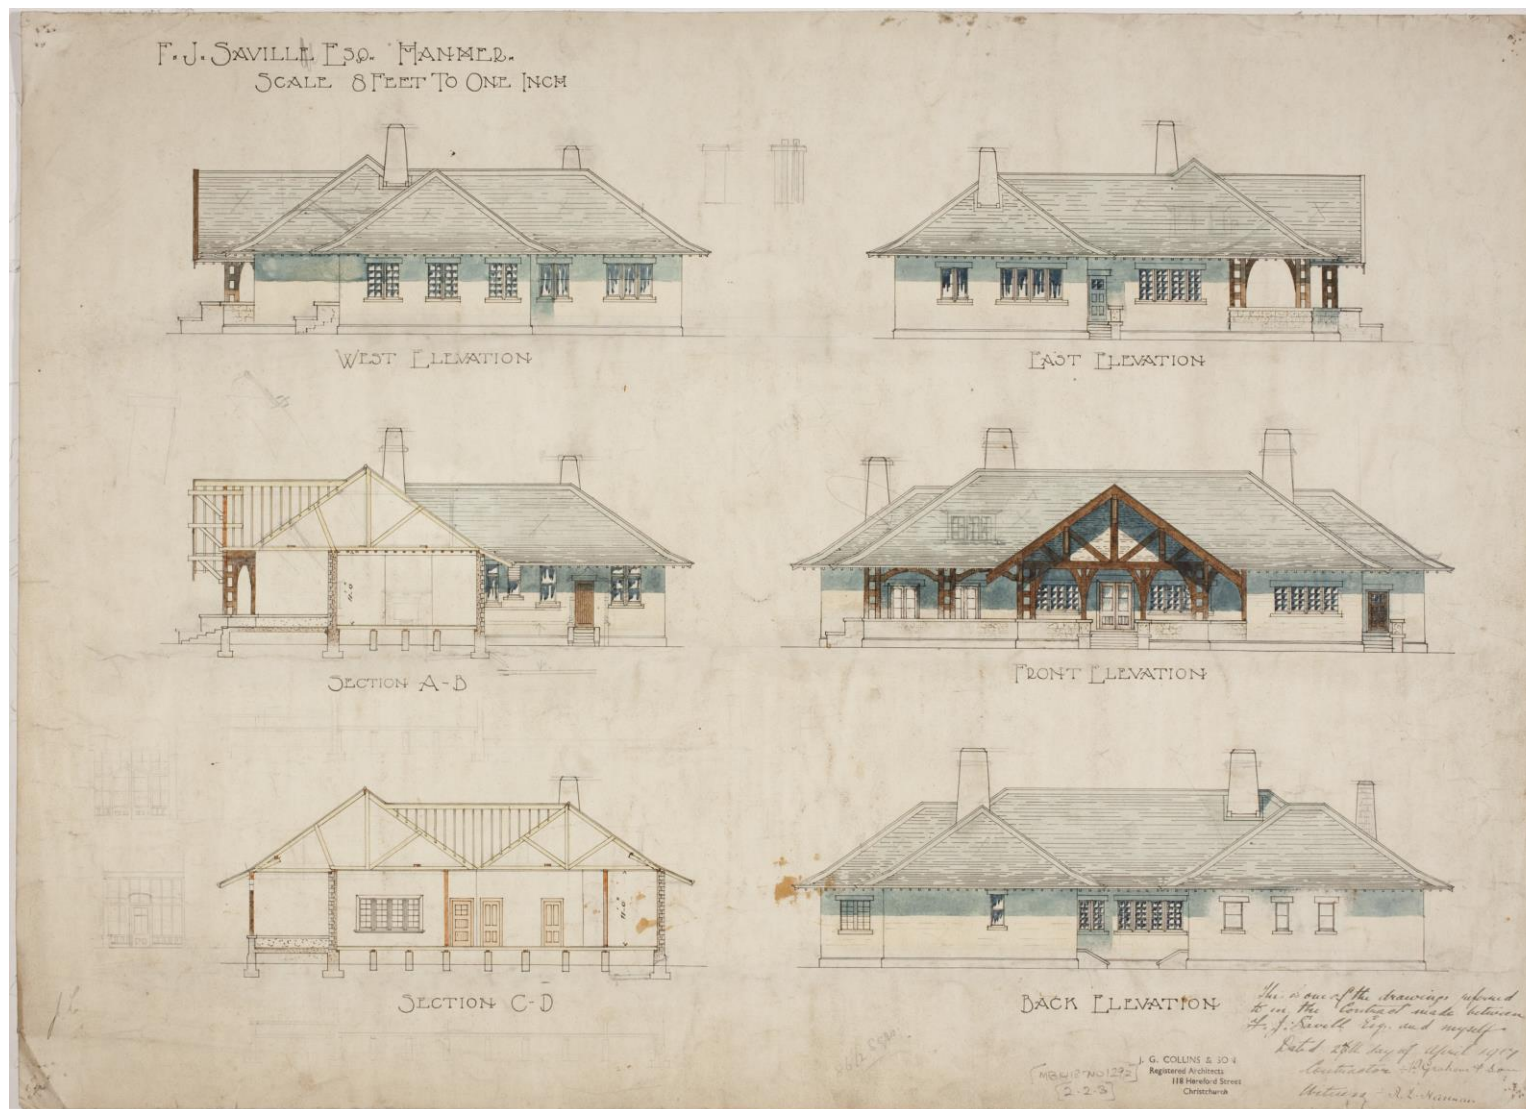 F. J. SAVILLE ESQ. HANMER.
SCALE 8 FEET TO ONE INCH
WEST ELEVATION
EAST ELEVATION
11'.0"
SECTION A-B
FRONT ELEVATION
11'.0"
SECTION C-D
BACK ELEVATION
This is one of the drawings referred
to in the Contract made between
F. J. Savill Esq. and myself
Dated 26th day of April 1907
Contractor P. Graham & Son
Witness - R. L. Hanman
J. G. COLLINS & SON
Registered Architects
118 Hereford Street
Christchurch
2-2-3